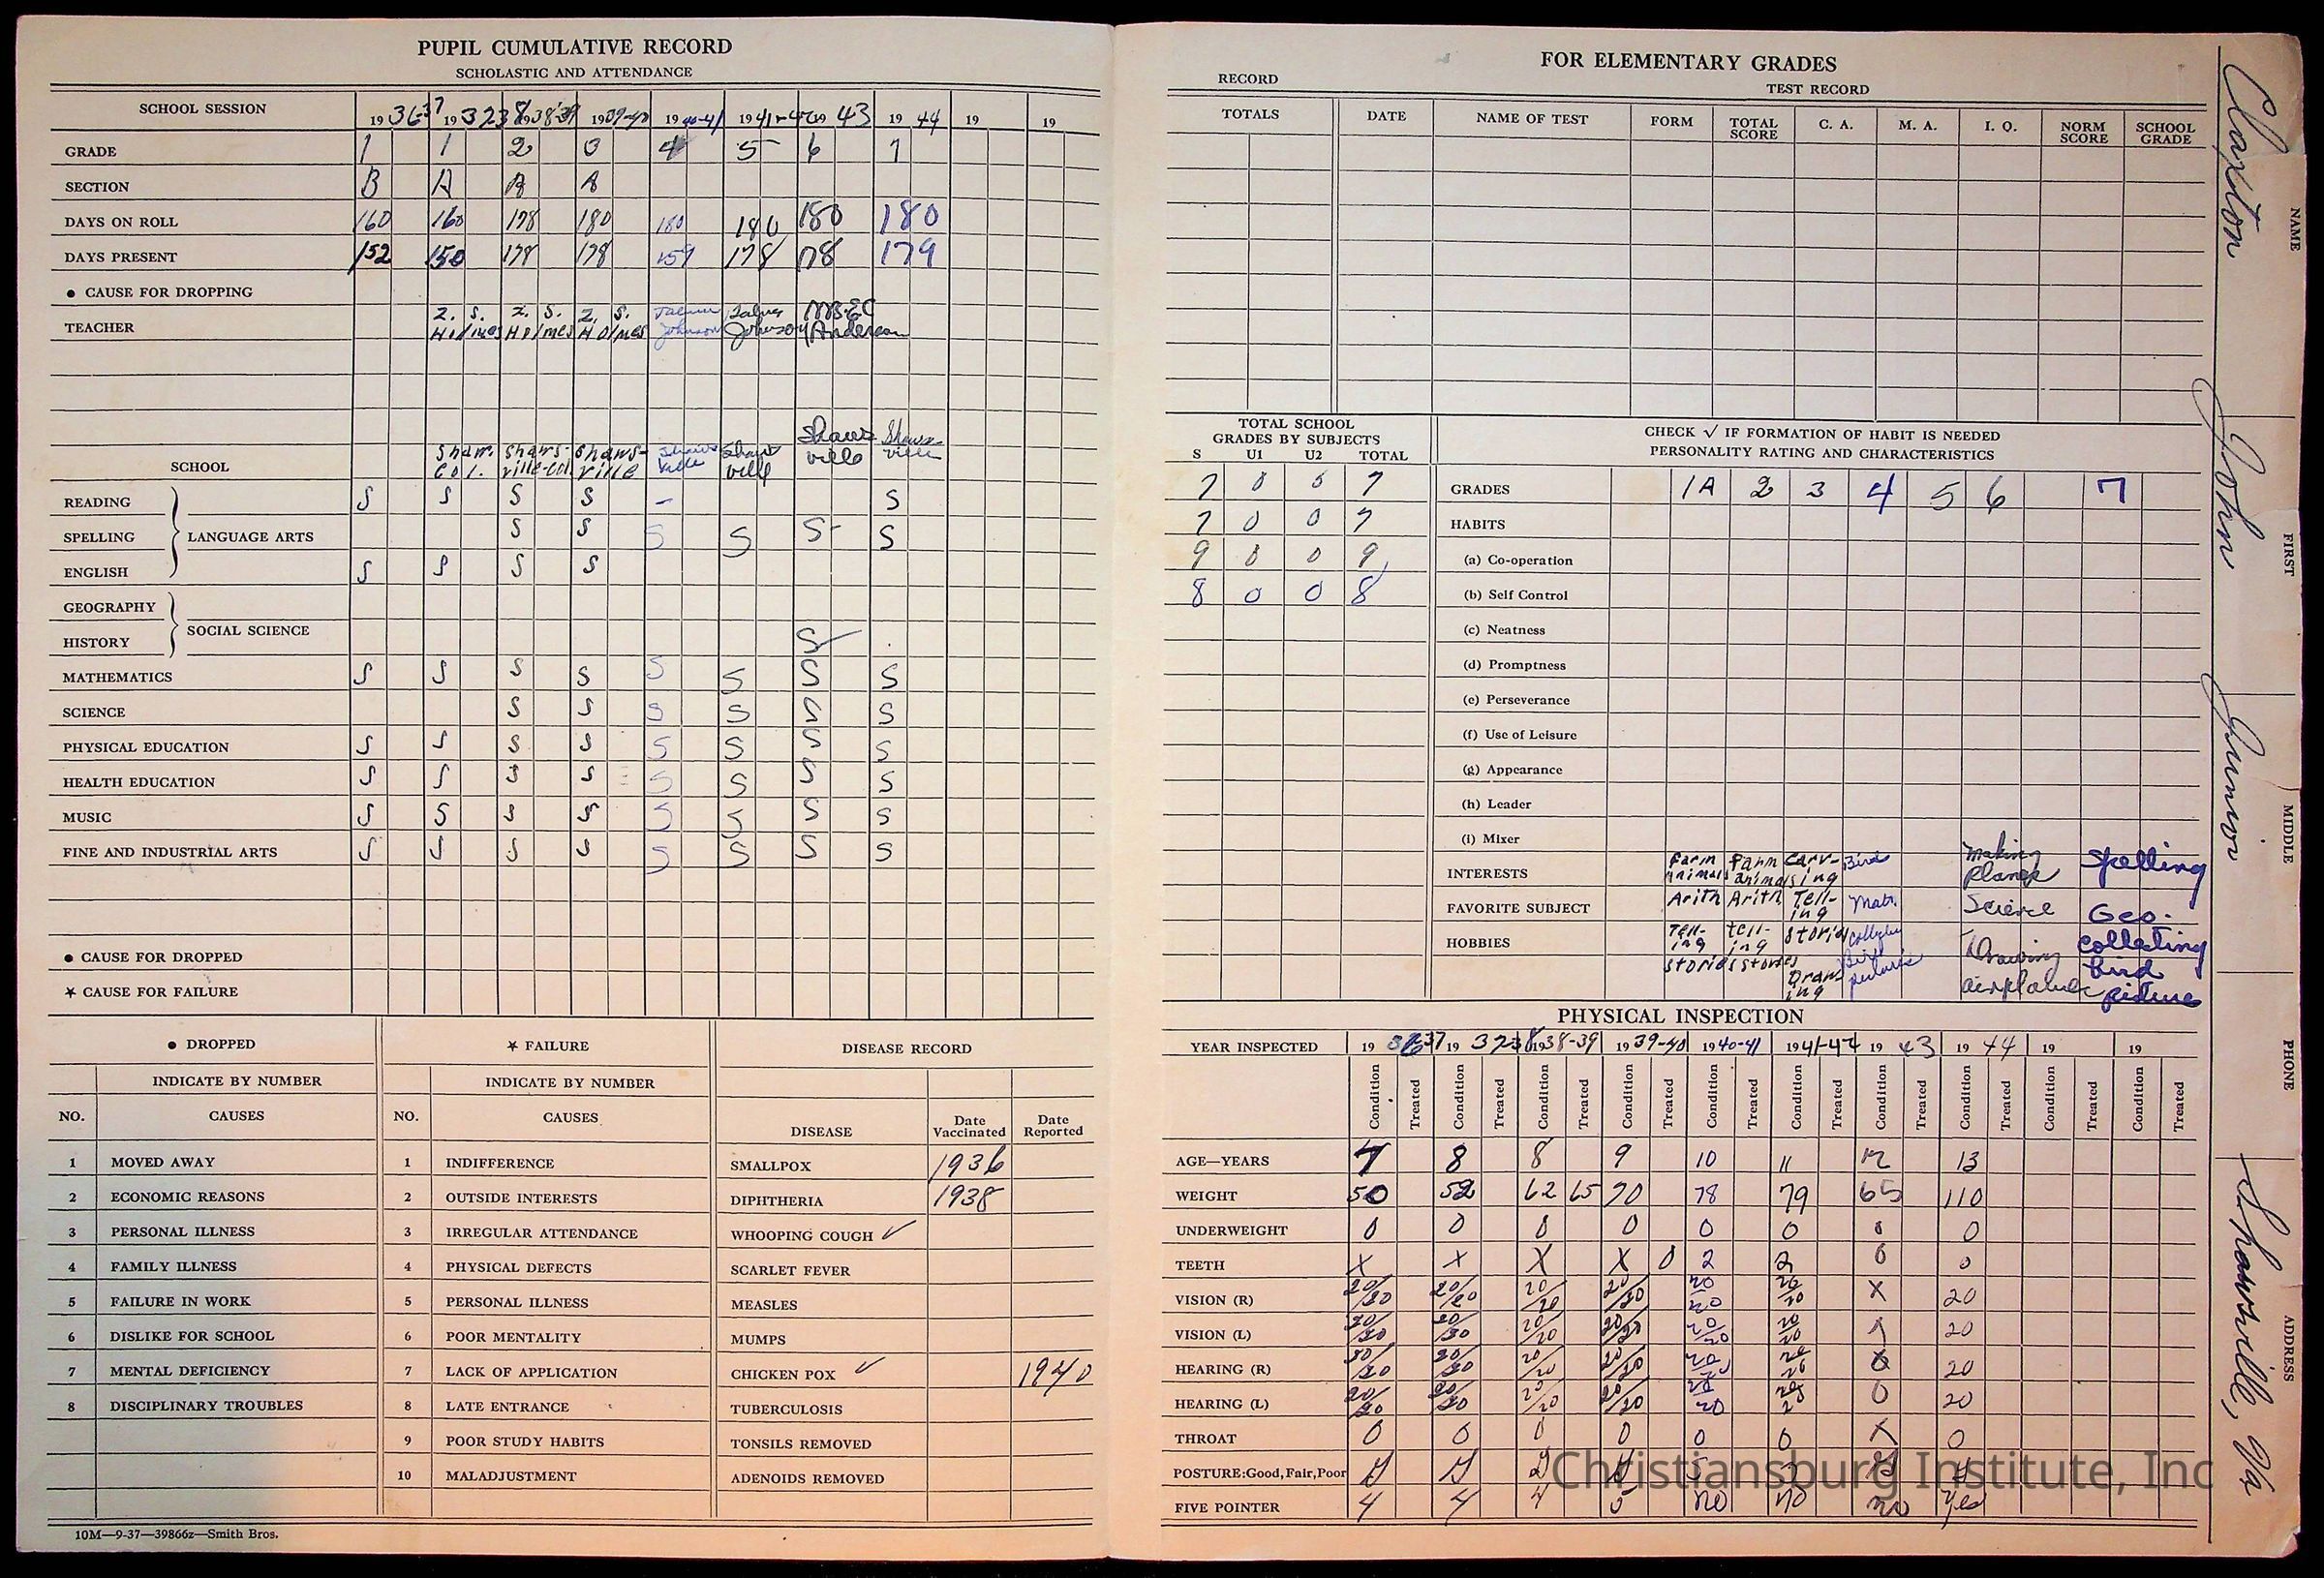 PUPIL CUMULATIVE RECORD
SCHOLASTIC AND ATTENDANCE
SCHOOL SESSION 19 36-37 19 37 38 19 38-39 19 39-40 19 40-41 19 41-42 19 43 19 44 19 19
GRADE 1 1 2 3 4 5 6 7
SECTION B A A A
DAYS ON ROLL 160 160 178 180 180 180 180 180
DAYS PRESENT 152 150 178 178 159 178 178 179
• CAUSE FOR DROPPING
Z. S. Z. S. Z. S.
TEACHER Holmes Holmes Holmes Johnson Johnson Anderson
Shaw. Shaws- Shaws- Shaws Shaws Shaws Shaws-
SCHOOL Col. ville-Col. ville ville ville ville ville
READING S S S S - S
SPELLING LANGUAGE ARTS S S S S S- S
ENGLISH S S S S
GEOGRAPHY
HISTORY SOCIAL SCIENCE S
MATHEMATICS S S S S S S S S
SCIENCE S S S S S S
PHYSICAL EDUCATION S S S S S S S S
HEALTH EDUCATION S S S S S S S S
MUSIC S S S S S S S S
FINE AND INDUSTRIAL ARTS S S S S S S S S
• CAUSE FOR DROPPED
★ CAUSE FOR FAILURE
• DROPPED
INDICATE BY NUMBER
NO. CAUSES
1 MOVED AWAY
2 ECONOMIC REASONS
3 PERSONAL ILLNESS
4 FAMILY ILLNESS
5 FAILURE IN WORK
6 DISLIKE FOR SCHOOL
7 MENTAL DEFICIENCY
8 DISCIPLINARY TROUBLES
★ FAILURE
INDICATE BY NUMBER
NO. CAUSES
1 INDIFFERENCE
2 OUTSIDE INTERESTS
3 IRREGULAR ATTENDANCE
4 PHYSICAL DEFECTS
5 PERSONAL ILLNESS
6 POOR MENTALITY
7 LACK OF APPLICATION
8 LATE ENTRANCE
9 POOR STUDY HABITS
10 MALADJUSTMENT
DISEASE RECORD
DISEASE Date Vaccinated Date Reported
SMALLPOX 1936
DIPHTHERIA 1938
WHOOPING COUGH ✓
SCARLET FEVER
MEASLES
MUMPS
CHICKEN POX ✓ 1940
TUBERCULOSIS
TONSILS REMOVED
ADENOIDS REMOVED
10M—9-37—39866z—Smith Bros.
FOR ELEMENTARY GRADES
RECORD
TEST RECORD
TOTALS DATE NAME OF TEST FORM TOTAL SCORE C. A. M. A. I. Q. NORM SCORE SCHOOL GRADE
TOTAL SCHOOL
GRADES BY SUBJECTS
S U1 U2 TOTAL
7 0 0 7
7 0 0 7
9 0 0 9
8 0 0 8
CHECK ✓ IF FORMATION OF HABIT IS NEEDED
PERSONALITY RATING AND CHARACTERISTICS
GRADES 1A 2 3 4 5 6 7
HABITS
(a) Co-operation
(b) Self Control
(c) Neatness
(d) Promptness
(e) Perseverance
(f) Use of Leisure
(g) Appearance
(h) Leader
(i) Mixer
INTERESTS Farm animals Farm animals Carving Bird Making planes Spelling
FAVORITE SUBJECT Arith Arith Telling Math. Science Geo.
HOBBIES Telling stories telling stories stories Drawing Bird pictures Drawing airplanes collecting bird picture
PHYSICAL INSPECTION
YEAR INSPECTED 19 36-37 19 37 38 19 38-39 19 39-40 19 40-41 19 41-42 19 43 19 44 19 19
Condition Treated Condition Treated Condition Treated Condition Treated Condition Treated Condition Treated Condition Treated Condition Treated Condition Treated Condition Treated
AGE—YEARS 7 8 8 9 10 11 12 13
WEIGHT 50 52 62 65 70 78 79 65 110
UNDERWEIGHT 0 0 0 0 0 0 0 0
TEETH X X X X 0 2 2 0 0
VISION (R) 20/20 20/20 20/20 20/20 20/20 20/20 X 20
VISION (L) 20/20 20/20 20/20 20/20 20/20 20/20 20
HEARING (R) 20/20 20/20 20/20 20/20 20/20 20/20 20
HEARING (L) 20/20 20/20 20/20 20/20 20/20 0 20
THROAT 0 0 0 0 0 0 X 0
POSTURE: Good, Fair, Poor
FIVE POINTER 4 4 4 5 no no no Yes
Claxton NAME
John FIRST
Junior MIDDLE
PHONE
Shawsville, Va ADDRESS
Christiansburg Institute, Inc